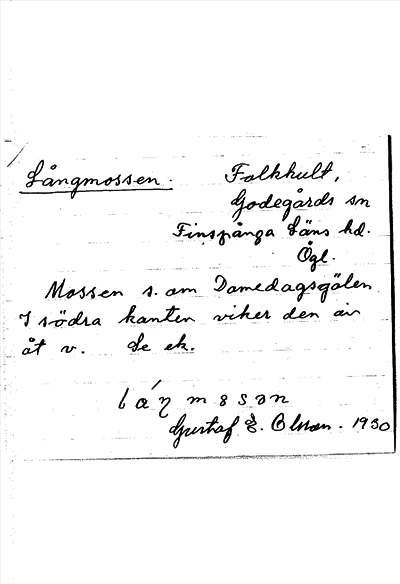 Långmossen.
Folkhult,
Godegårds sn
Finspånga Läns hd.
Ögl.
Mossen s. om Damedagsgölen
I södra kanten viker den av
åt v. Se ek.
Gustaf E. Olsson. 1930